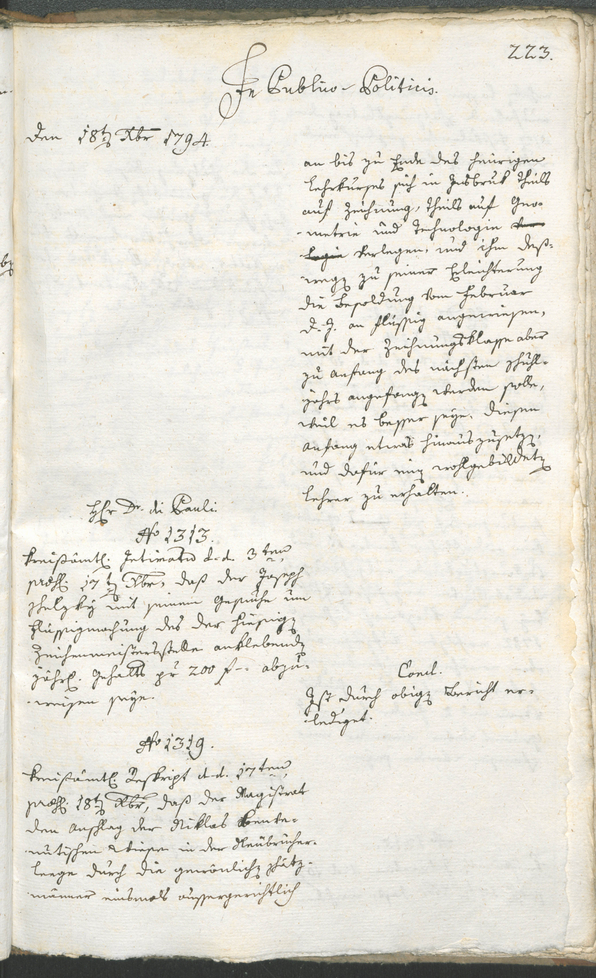 223.
In Publico-Politicis.
Den 18t 10br 1794.
an bis zu Ende des heurigen
Lehrkurses sich in Insbruk theils
auf Zeichnung, theils auf Geo-
metrie und Technologie
verlegen, und ihm deß-
wegen zu seiner Erleichterung
die Besoldung vom Februar
d. J. an flüssig angewiesen,
mit der Zeichnungsklasse aber
zu Anfang des nächsten Schul-
jahrs angefangen werden solle,
weil es besser seye, diesen
Anfang etwas hinauszusetzen,
und dafür einen wohlgebildeten
Lehrer zu erhalten.
Hr Dr. di Pauli.
No 1313.
Kreisämtl. Intimation d.d. 3ten
praes. 17t 10br, daß der Joseph
mit seinem Gesuche um
Flüssigmachung des der hiesigen
Zeichenmeistersstelle anklebenden
jährl. Gehalts pr 200 f abzu-
weisen seye.
Concl.
Ist durch obigen Bericht er-
lediget.
No 1319.
Kreisämtl. Reskript d.d. 17ten
praes. 18t 10br, daß der Magistrat
den Anschlag der Niklas
in der
durch die gewönlichen Schätz-
männer einsmals aussergerichtlich